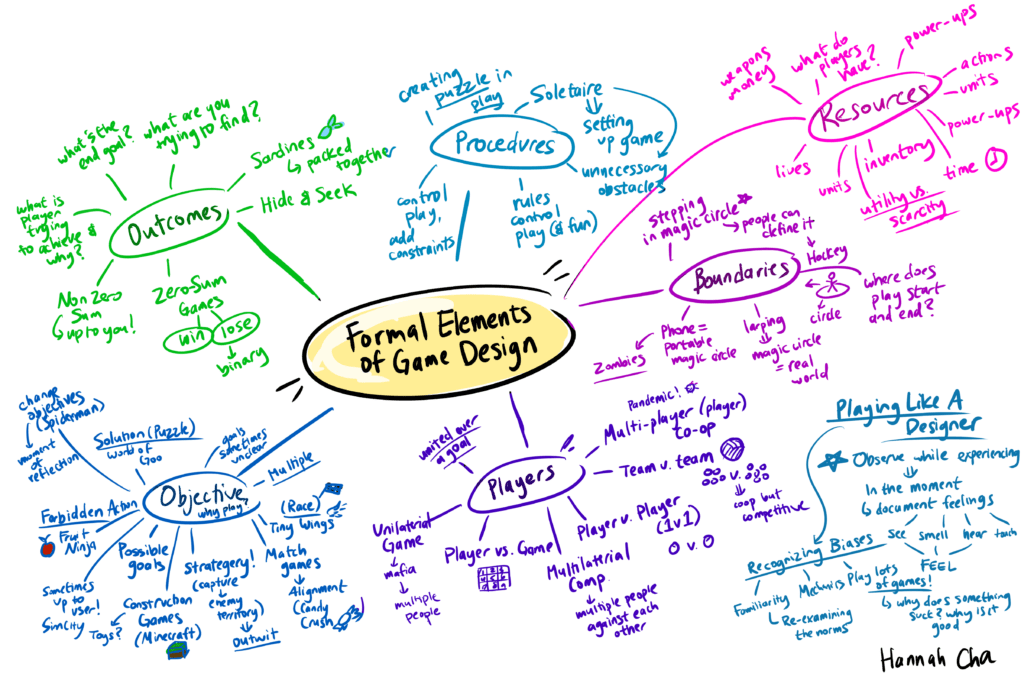 creating
puzzle in
play
Soletaire
setting
up game
unnecessary
obstacles
Procedures
control
play,
add
constraints
rules
control
play (& fun)
what's the
end goal?
what are you
trying to find?
Sardines
packed
together
Hide & Seek
what is
player
trying
to achieve &
why?
Outcomes
Non Zero
Sum
up to you!
Zero-Sum
Games
win
lose
binary
weapons
money
what do
players
have?
power-ups
actions
units
power-ups
Resources
lives
units
inventory
utility vs.
scarcity
time
stepping
in magic circle
people can
define it
Hockey
Boundaries
circle
where does
play start
and end?
Phone =
portable
magic circle
Zombies
larping
magic circle
= real
world
Formal Elements
of Game Design
change
objectives
(Spiderman)
moment
of
reflection
Solution (Puzzle)
World of
Goo
goals
sometimes
unclear
Multiple
Objective
why play?
Forbidden Action
Fruit
Ninja
(Race)
Tiny Wings
Possible
goals
Strategery!
(capture
enemy
territory)
outwit
Match
games
Alignment
(Candy
Crush)
Sometimes
up to
user!
Simcity
Toys?
Construction
Games
(Minecraft)
united over
a goal
Pandemic!
Multi-player (player)
co-op
Team v. team
v.
coop but
competitive
Players
Unilateral
Game
mafia
multiple
people
Player vs. Game
Player v. Player
(1v1)
v.
Multilatrial
Comp.
multiple people
against each
other
Playing Like A
Designer
Observe while experiencing
In the moment
document feelings
see smell hear touch
FEEL
Recognizing Biases
Familiarity
Mechanics
Re-examining
the norms
Play lots
of games!
why does something
suck? why is it
good
Hannah Cha